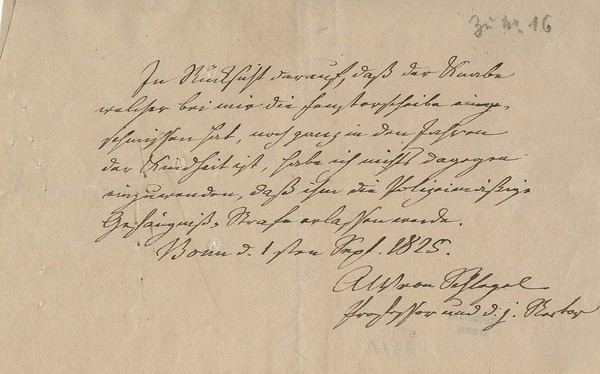 Zu Nr. 16
In Rücksicht darauf, daß der Knabe
welcher bei mir die Fensterscheibe einge-
schmissen hat, noch ganz in den Jahren
der Kindheit ist, habe ich nichts dagegen
einzuwenden, daß ihm die Polizeimäßige
Gefängniß-Strafe erlassen werde.
Bonn d. 1sten Sept. 1825.
AW von Schlegel
Professor und d. j. Rector